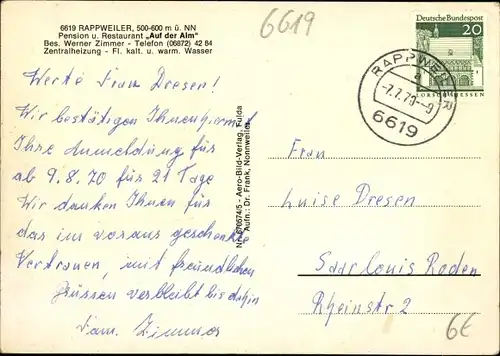 6619 RAPPWEILER, 500-600 m ü. NN
Pension u. Restaurant „Auf der Alm"
Bes. Werner Zimmer - Telefon (06872) 42 84
Zentralheizung - Fl. kalt. u. warm. Wasser
6619
Deutsche Bundespost
20
LORSCH/HESSEN
RAPPWEILER
a
-7.7.70--9
6619
Werte Frau Dresen!
Wir bestätigen Ihnen hiermit
Ihre Anmeldung für
ab 9.8.70 für 21 Tage
Wir danken Ihnen für
das im voraus geschenkte
Vertrauen, mit freundlichen
Grüssen verbleibt bis dahin
Fam. Zimmer
Aero-Bild-Verlag, Fulda
Aufn.: Dr. Frank, Nonnweiler
Frau
Luise Dresen
Saarlouis Roden
Rheinstr 2
6€